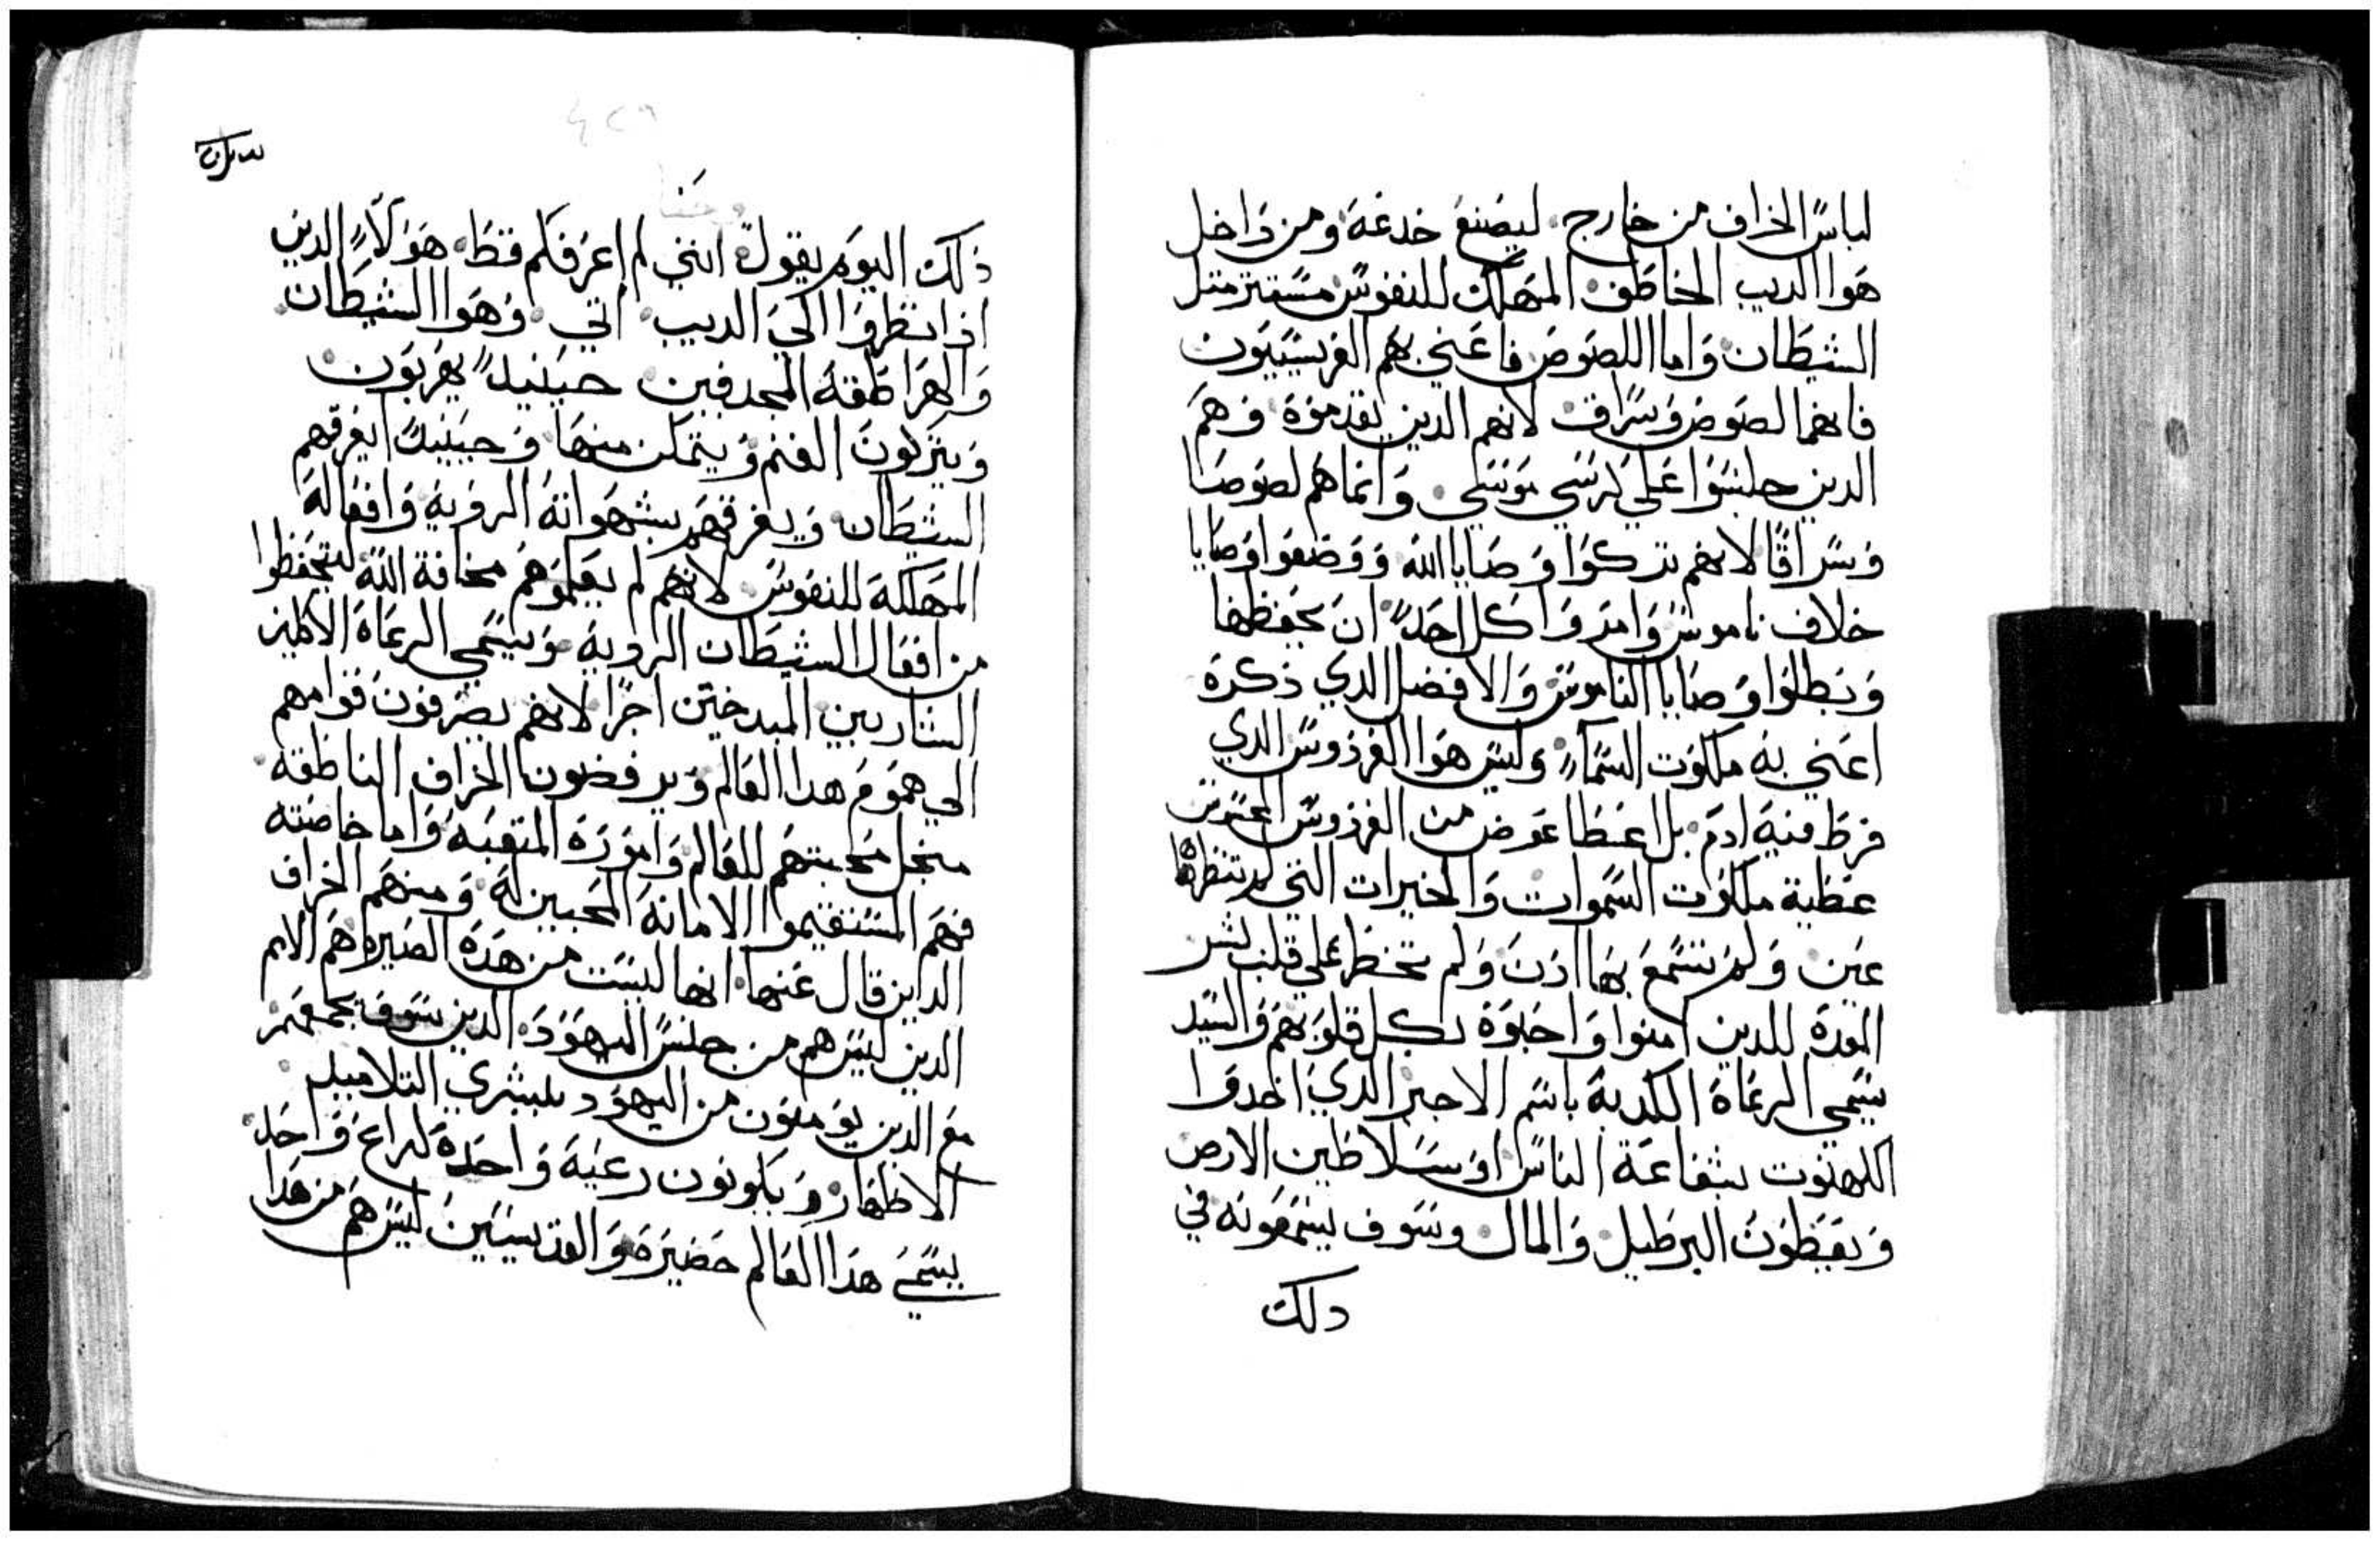 لباس الخراف من خارج ليصنع خدعة ومن داخل
هوا الديب الخاطف المهلك للنفوس مستتر متل
الشيطان واما اللصوص فاعني بهم الفريسيون
فانهم لصوص وسراق لانهم الدين تقدموة وهم
الدين جلسوا علي كرسي موسي وانما هم لصوصا
وسراقا لانهم تركوا وصايا الله ووضعوا وصايا
خلاف ناموس وامروا كل احد ان يحفظها
وبطلوا وصايا الناموس والافضل الدي ذكرة
اعني به ملكوت السماء وليس هوا الفردوس الدي
فرط فيه ادم بل اعطا عوض من الفردوس
عطية ملكوت السموات والخيرات التي لم تنظرها
عين ولم تسمع بها ادن ولم تخطر علي قلب بشر
المعدة للدين امنوا واحبوة بكل قلوبهم والسيد
يسمي الرعاة الكدبة باسم الاجير الدي اخدوا
الكهنوت بشفاعة الناس او سلاطين الارض
ويعطون البرطيل والمال وسوف يسمعونه في
دلك
ذلك اليوم يقول انني لم اعرفكم قط هولاء الدين
اذا نظروا الي الديب اتي وهوا الشيطان
والهراطقة المجدفين حينيد يهربون
ويتركون الغنم ويتمكن منها وحينيد يفرقهم
الشيطان ويغرقهم بشهواته الردية وافعاله
المهلكة للنفوس لانهم لم يعلموهم مخافة الله ليتحفظوا
من افعال الشيطان الردية ويسمي الرعاة
لانهم يصرفون قوامهم
الي هموم هدا العالم ويرفضون الخراف الناطقة
منجل محبتهم للعالم وامورة المتعبه واما خاصته
فهم المستقيموا الامانة المحبين له ومنهم الخراف
الداين قال عنها انها ليست من هدة الصيره هم الامم
الدين ليس هم من جنس اليهود الدين سوف يجمعهم
مع الدين يومنون من اليهود ببشري التلاميد
الاطهار ويكونون رعية واحدة لراع واحد
يسمي هدا العالم حضيرة والقديسين ليس هم من هدا